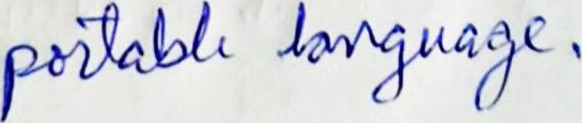 portable language.